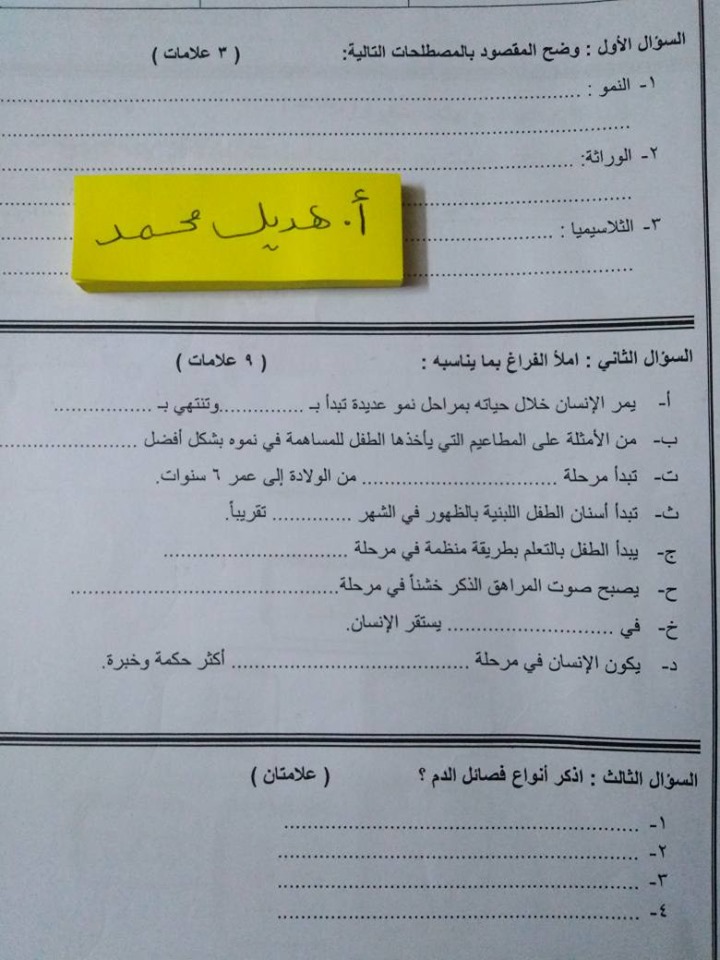 السؤال الأول : وضح المقصود بالمصطلحات التالية: ( ٣ علامات )
١- النمو : ......................................................
......................................................
٢- الوراثة: ......................................................
......................................................
أ. هديل محمد
٣- الثلاسيميا : ......................................................
......................................................
السؤال الثاني : املأ الفراغ بما يناسبه : ( ٩ علامات )
أ- يمر الإنسان خلال حياته بمراحل نمو عديدة تبدأ بـ ................وتنتهي بـ ................
ب- من الأمثلة على المطاعيم التي يأخذها الطفل للمساهمة في نموه بشكل أفضل ......................
ت- تبدأ مرحلة ................................ من الولادة إلى عمر ٦ سنوات.
ث- تبدأ أسنان الطفل اللبنية بالظهور في الشهر ............. تقريباً.
ج- يبدأ الطفل بالتعلم بطريقة منظمة في مرحلة ..............................
ح- يصبح صوت المراهق الذكر خشناً في مرحلة............................................
خ- في ........................... يستقر الإنسان.
د- يكون الإنسان في مرحلة ...................................... أكثر حكمة وخبرة.
السؤال الثالث : اذكر أنواع فصائل الدم ؟ ( علامتان )
١- ......................................................
٢- ......................................................
٣- ......................................................
٤- ......................................................